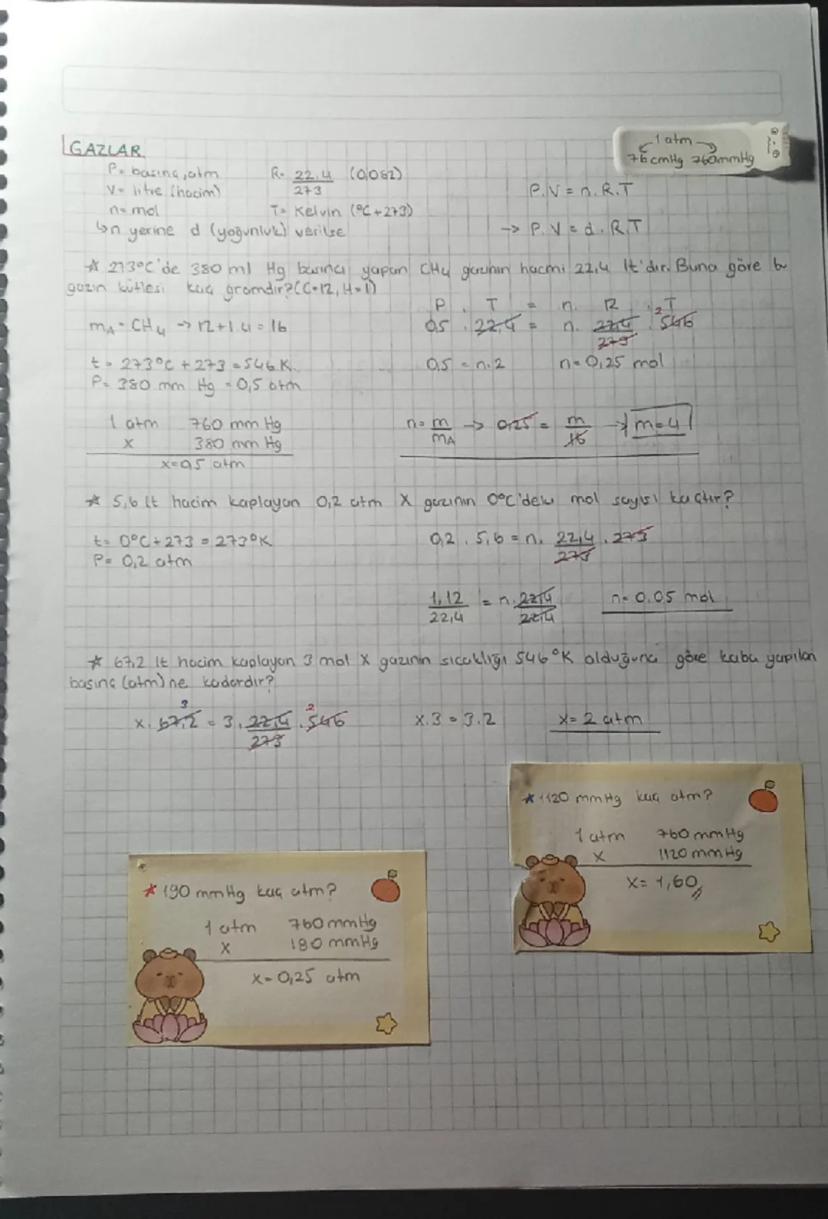 GAZLAR
1 atm
76 cmHg 760mmHg
P= basınç, atm
R= 22,4 (0,082)
273
V= litre (hacim)
P.V = n.R.T
n= mol
T= Kelvin (°C+273)
↳n yerine d (yoğunluk) verilse
→ P.V = d.RT
★ 273°C'de 380 ml Hg basıncı yapan CH4 gazının hacmi 22,4 lt'dır. Buna göre bu
gazın kütlesi kaç gramdır? (C=12, H=1)
P . T = n. R . T
mA = CH4 → 12+1.4 = 16
0,5 . 22,4 = n. 22,4 . 546 2
273
t = 273°C + 273 = 546 K
0,5 = n.2 n=0,25 mol
P= 380 mm Hg = 0,5 atm
1 atm 760 mm Hg
n= m → 0,25 = m → m=4
mA 16
x 380 mm Hg
x=0,5 atm
★ 5,6 lt hacim kaplayan 0,2 atm X gazının 0°C'deki mol sayısı kaçtır?
t= 0°C+273 = 273°K
0,2 . 5,6 = n. 22,4 . 273
273
P= 0,2 atm
1,12 = n.22,4 n= 0.05 mol
22,4 22,4
★ 67,2 lt hacim kaplayan 3 mol X gazının sıcaklığı 546°K olduğuna göre kaba yapılan
basınç (atm) ne kadardır?
3 2
x. 67,2 = 3. 22,4 . 546 x.3 = 3.2 x= 2 atm
273
★ 1120 mmHg kaç atm?
1 atm 760 mmHg
x 1120 mmHg
x= 1,60
★ 190 mmHg kaç atm?
1 atm 760 mmHg
x 190 mmHg
x= 0,25 atm